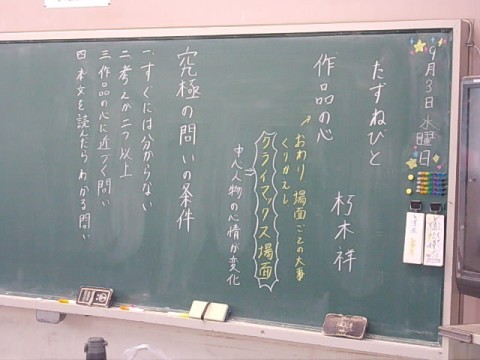 9月3日 水曜日
たずねびと
朽木祥
作品の心
おわり 場面ごとの大事
くりかえし
クライマックス場面
中心人物の心情が変化
究極の問いの条件
一.すぐには分からない
二.考えが二つ以上
三.作品の心に近づく問い
四.本文を読んだらわかる問い